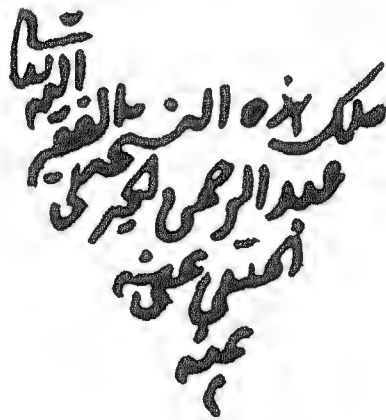 ملك هذه النسخة الفقير اليه تعالى
عبد الرحمن الجبرتي
الحنفي عفي
عنه